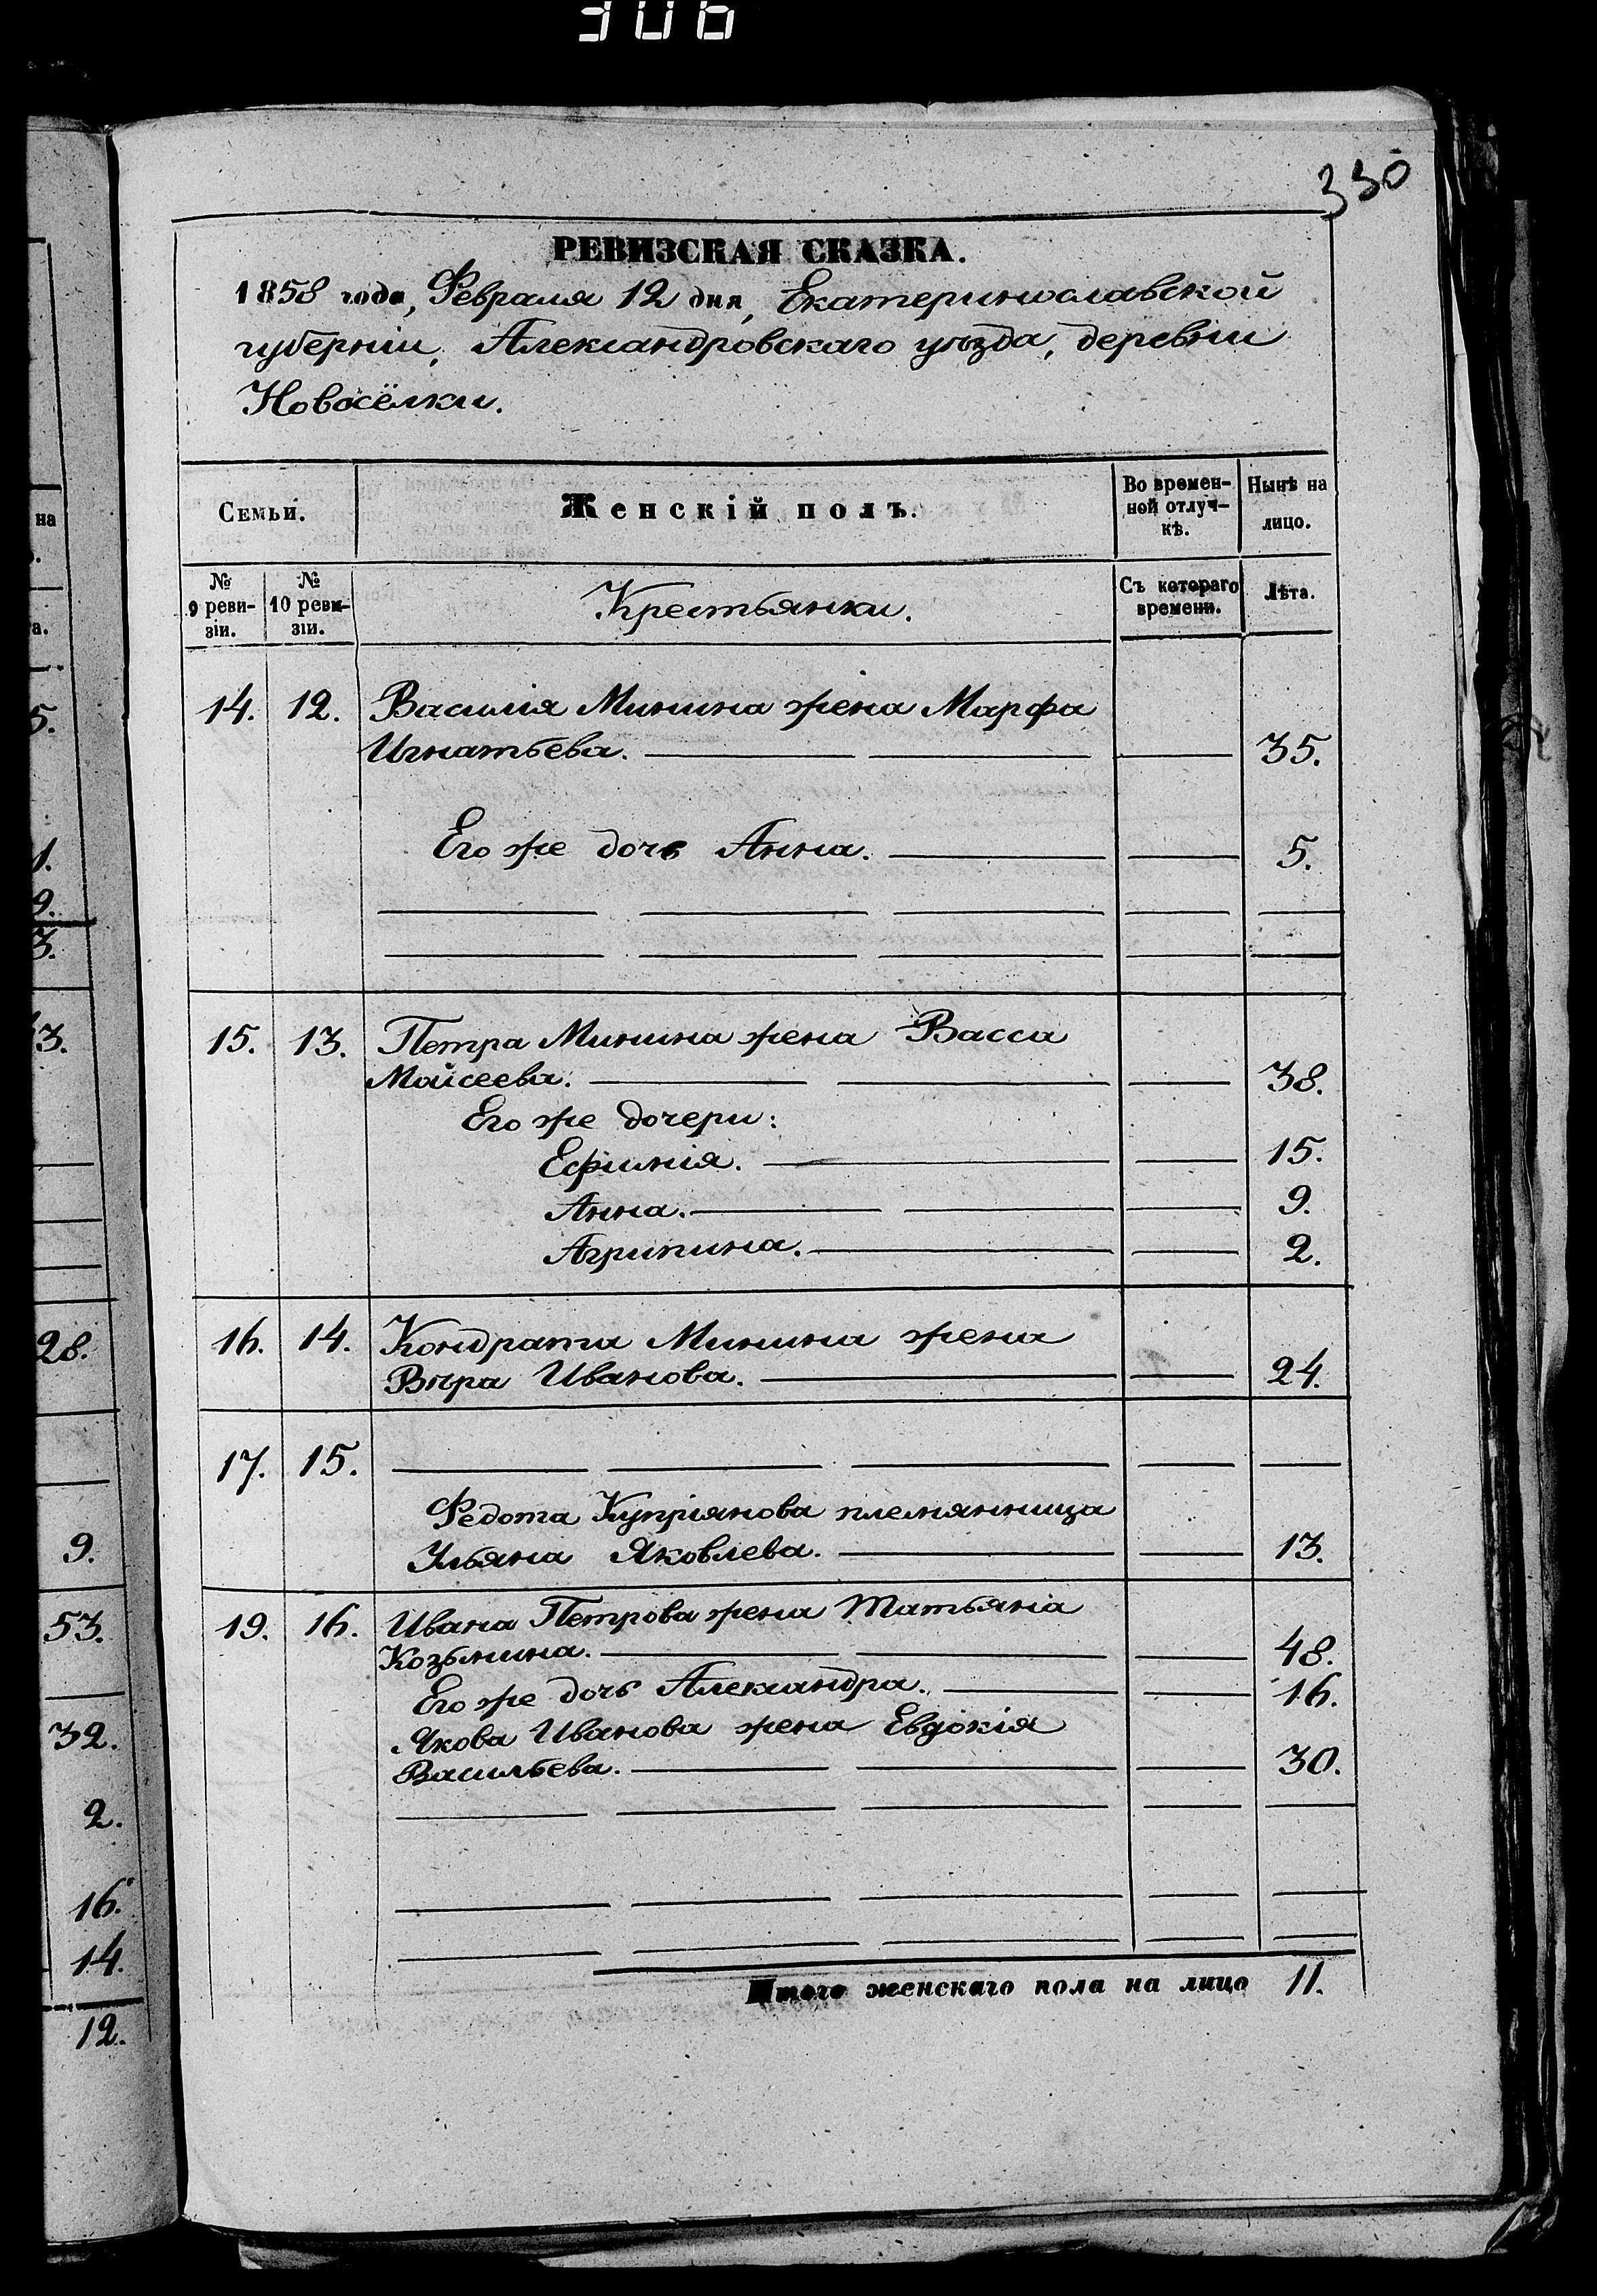 306
330
РЕВИЗСКАЯ СКАЗКА.
1858 года, Февраля 12 дня, Екатеринославской
губерніи, Александровскаго уѣзда, деревни
Новосёлки.
Семьи.
Женскій полъ.
Во времен-
ной отлуч-
кѣ.
Нынѣ на
лицо.
№
9 реви-
зіи.
№
10 реви-
зіи.
Крестьянки.
Съ котораго
времени.
Лѣта.
14. 12. Василія Минина жена Марфа
Игнатьева. 35.
Его же дочь Анна. 5.
15. 13. Петра Минина жена Васса
Мойсеева. 38.
Его же дочери:
Ефимія. 15.
Анна. 9.
Агрипина. 2.
16. 14. Кондрата Минина жена
Вѣра Иванова. 24.
17. 15.
Федота Купріянова племянница
Ульяна Яковлева. 13.
19. 16. Ивана Петрова жена Татьяна
Козьмина. 48.
Его же дочь Александра. 16.
Якова Иванова жена Евдокія
Васильева. 30.
Итого женскаго пола на лицо 11.
на
а.
5.
1.
9.
3.
3.
28.
9.
53.
32.
2.
16.
14.
12.